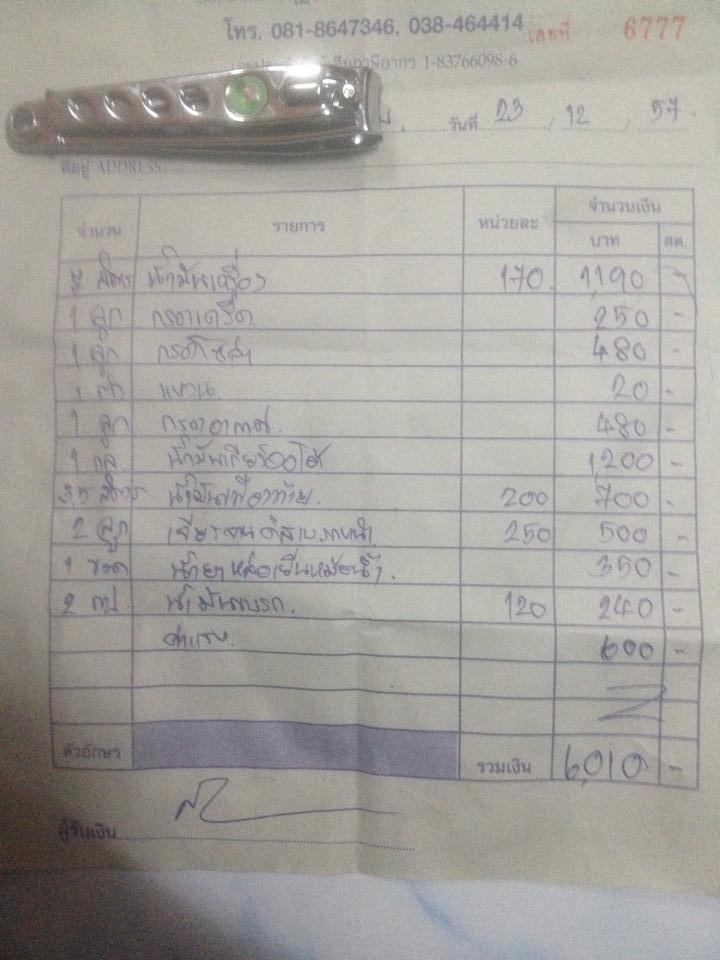 โทร. 081-8647346, 038-464414 เลขที่ 6777
ภาษีอากร 1-83766098-6
วันที่ 23 / 12 / 57
ที่อยู่ ADDRESS
จำนวน รายการ หน่วยละ จำนวนเงิน
บาท สต.
7 ลิตร น้ำมันเครื่อง 170 1,190 -
1 ลูก กรองเครื่อง 250 -
1 ลูก กรองโซล่า 480 -
1 ตัว แหวน 20 -
1 ลูก กรองอากาศ 480 -
1 กล. น้ำมันเกียร์ออโต้ 1,200 -
3.5 ลิตร น้ำมันเฟืองท้าย 200 700 -
2 ลูก เจียรจานดิสเบรคหน้า 250 500 -
1 ขวด น้ำยาหล่อเย็นหม้อน้ำ 350 -
2 กป. น้ำมันเบรก 120 240 -
ค่าแรง 600 -
ตัวอักษร รวมเงิน 6,010 -
ผู้รับเงิน